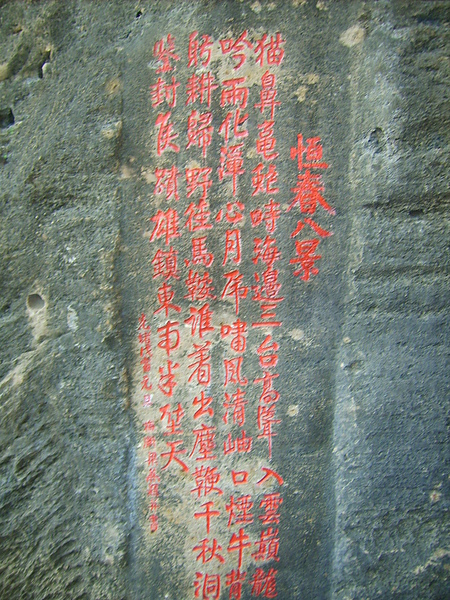 恒春八景
猫鼻龜蛇峙海邊三台高聳入雲巔龍
吟雨化潭心月虎嘯風清岫口煙牛背
躬耕歸野徑馬鞍誰着出塵鞭千秋洞
鑒封侯蹟雄鎖東南半壁天
元旦